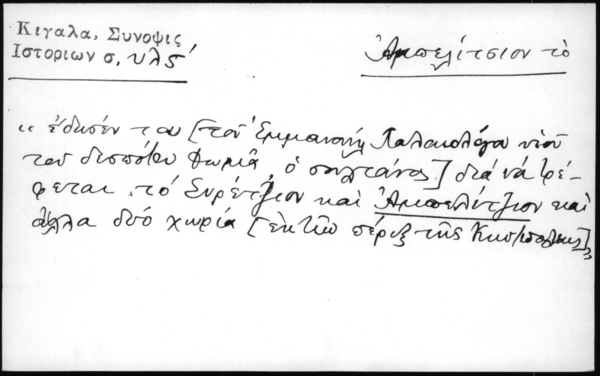 Κιγαλα, Συνοψις
Ιστοριων σ. υλς΄
Ἀμπελίτσιον τὸ
“ ἔδωσέν του [τοῦ Ἐμμανουὴλ Παλαιολόγου υἱοῦ
του δεσπότου Θωμᾶ, ὁ σουλτάνος] διά νά τρέ-
φεται τό Συρέντζιον καὶ Ἀμπελίντζιον καὶ
ἄλλα δυό χωρία [ἐκ τῶν πέριξ τῆς Κων/πόλεως]”